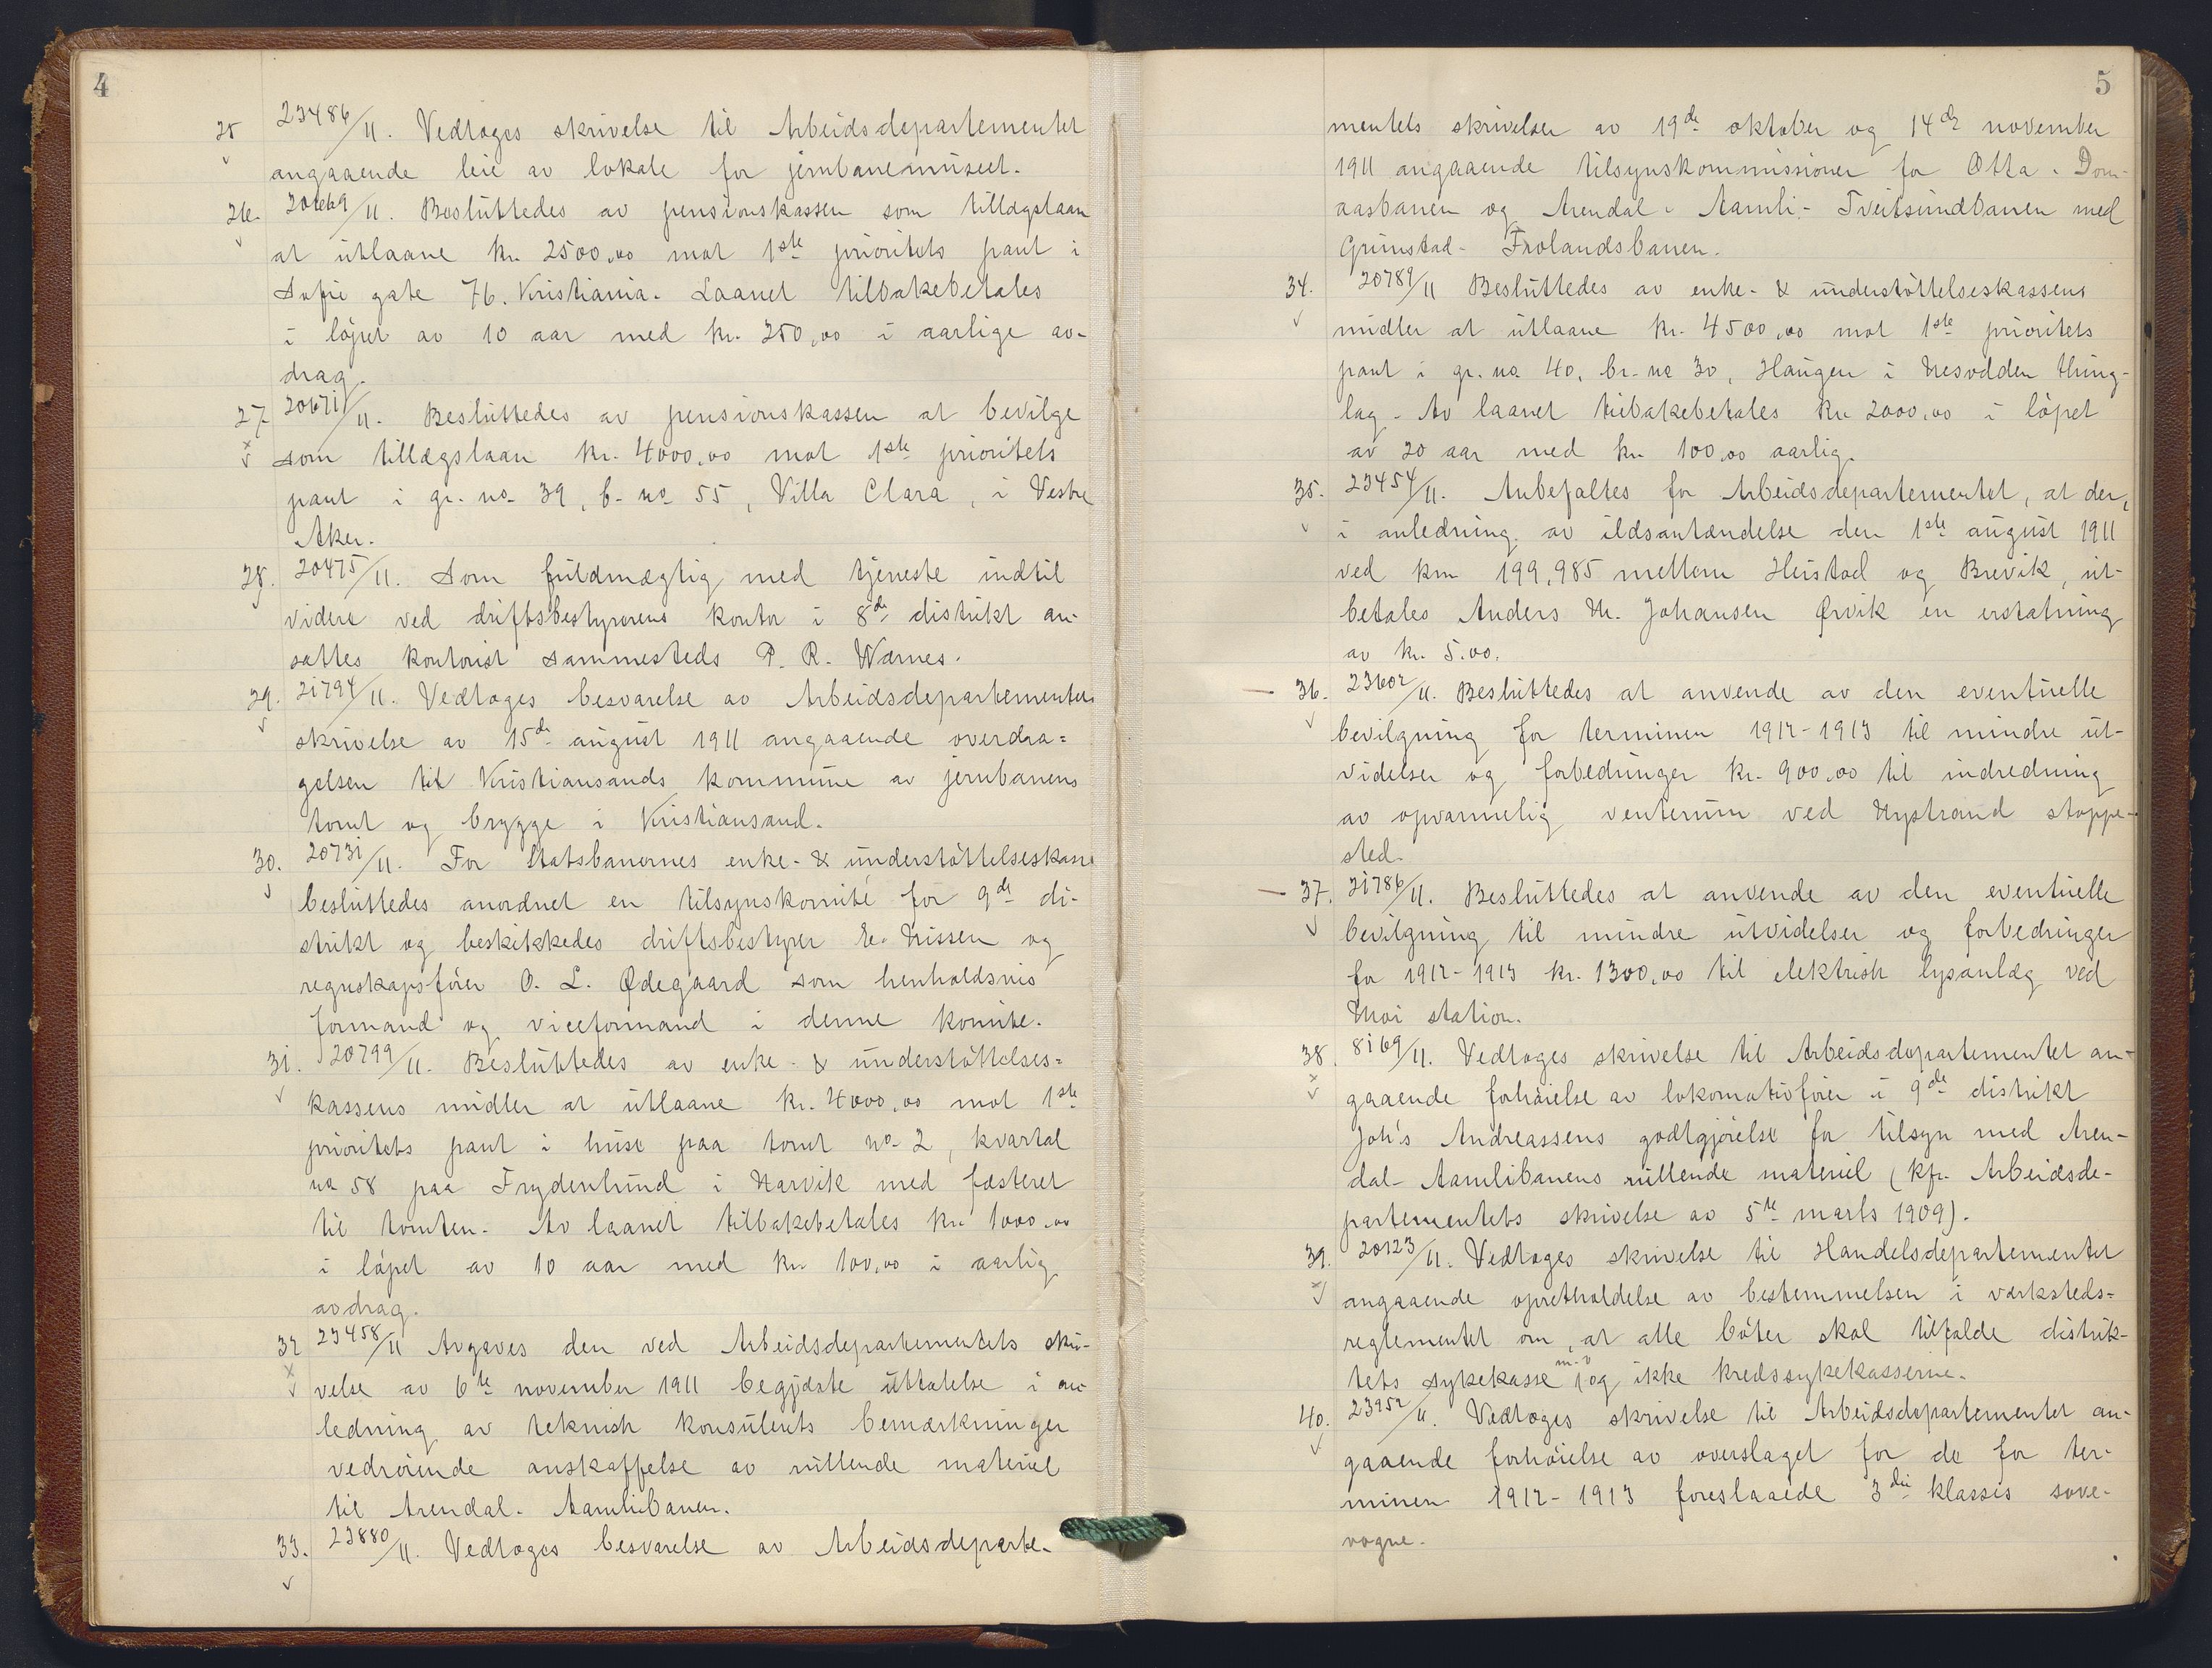 4
25 23486/11. Vedtoges skrivelse til Arbeidsdepartementet
angaaende leie av lokale for jernbanemuseet.
26. 20669/11. Besluttedes av pensionskassen som tillægslaan
at utlaane kr. 2500,00 mot 1ste prioritets pant i
Sofie gate 76. Kristiania. Laanet tilbakebetales
i löpet av 10 aar med kr. 250,00 i aarlige av-
drag.
27 20671/11. Besluttedes av pensionskassen at bevilge
som tillægslaan kr. 4000,00 mot 1ste prioritets
pant i gr. no. 39, b. no 55, Villa Clara, i Vestre
Aker.
28. 20475/11. Som fuldmægtig med tjeneste indtil
videre ved driftsbestyrerens kontor i 8de distrikt an-
sattes kontorist sammesteds P. R. Warnes.
29. 21794/11. Vedtoges besvarelse av Arbeidsdepartementets
skrivelse av 15de august 1911 angaaende overdra=
gelsen til Kristiansands kommune av jernbanens
tomt og brygge i Kristiansand.
30. 20731/11. For Statsbanernes enke- & understöttelseskasse
besluttedes anordnet en tilsynskomité for 9de di-
strikt og beskikkedes driftsbestyrer E. Nissen og
regnskapsförer O. L. Ødegaard som henholdsvis
formand og viceformand i denne komite.
31. 20799/11. Besluttedes av enke- & understöttelses=
kassens midler at utlaane kr. 4000,00 mot 1ste
prioritets pant i huse paa tomt no. 2, kvartal
no 58 paa Frydenlund i Narvik med fæsteret
til tomten. Av laanet tilbakebetales kr. 1000,00
i löpet av 10 aar med kr. 100,00 i aarlig
avdrag.
32 23458/11 Avgaves den ved Arbeidsdepartementets skri-
velse av 6te november 1911 begjærte uttalelse i an-
ledning av teknisk konsulents bemærkninger
vedrörende anskaffelse av rullende materiel
til Arendal-Aamlibanen.
33. 23880/11. Vedtoges besvarelse av Arbeidsdeparte-
5
mentets skrivelser av 19de oktober og 14de november
1911 angaaende tilsynskommissioner for Otta-Dom-
aasbanen og Arendal-Aamli-Tveitsundbanen med
Grimstad-Frolandsbanen.
34. 20789/11 Besluttedes av enke- & understöttelseskassens
midler at utlaane kr. 4500,00 mot 1ste prioritets
pant i gr. no 40, br. no 30, Haugen i Nesodden thing-
lag. Av laanet tilbakebetales kr. 2000,00 i löpet
av 20 aar med kr. 100,00 aarlig.
35. 23454/11. Anbefaltes for Arbeidsdepartementet, at der,
i anledning av ildsantændelse den 1ste august 1911
ved km 199,985 mellem Heistad og Brevik, ut-
betales Anders M. Johansen Ørvik en erstatning
av kr. 5.00.
— 36. 23602/11. Besluttedes at anvende av den eventuelle
bevilgning for terminen 1912-1913 til mindre ut-
videlser og forbedringer kr. 900,00 til indredning
av opvarmelig venterum ved Nystrand stoppe-
sted.
— 37. 21786/11. Besluttedes at anvende av den eventuelle
bevilgning til mindre utvidelser og forbedringer
for 1912-1913 kr. 1300,00 til elektrisk lysanlæg ved
Moi station.
38. 8169/11. Vedtoges skrivelse til Arbeidsdepartementet an-
gaaende forhöielse av lokomotivförer i 9de distrikt
Joh's Andreassens godtgjörelse for tilsyn med Aren-
dal-Aamlibanens rullende materiel (kfr. Arbeidsde-
partementets skrivelse av 5te marts 1909).
39. 20123/11. Vedtoges skrivelse til Handelsdepartementet
angaaende opretholdelse av bestemmelsen i værksteds=
reglementet om, at alle böter skal tilfalde distrik-
tets sykekasse m. v. og ikke kredssykekasserne.
40. 23952/11. Vedtoges skrivelse til Arbeidsdepartementet an-
gaaende forhöielse av overslaget for de for ter-
minen 1912-1913 foreslaaede 3die klasses sove-
vogne.